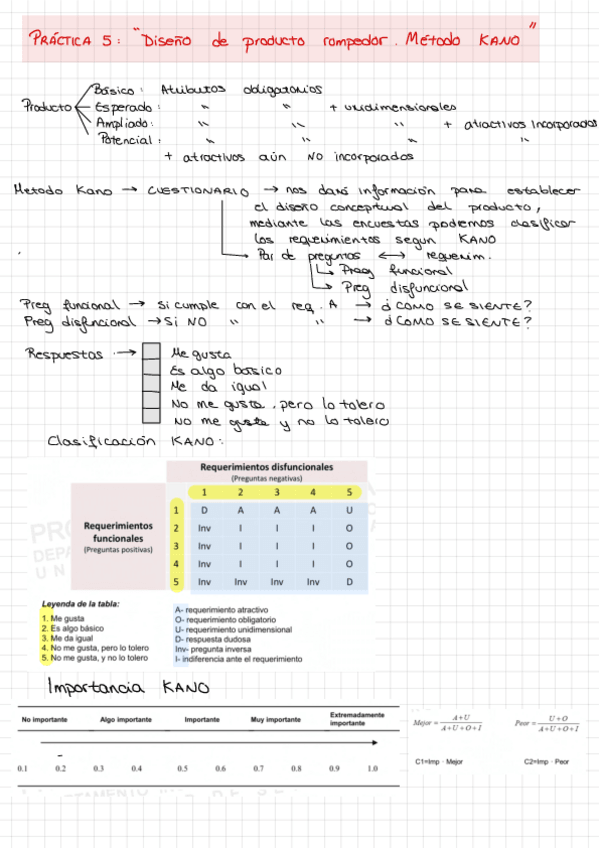 PRÁCTICA 5: "Diseño de producto rompedor. Método KANO"
Básico: Atributos obligatorios
Producto Esperado: " " + unidimensionales
Ampliado: " " " + atractivos Incorporados
Potencial: " " " "
+ atractivos aún NO incorporados
Metodo Kano → CUESTIONARIO → nos dará información para establecer
el diseño conceptual del producto,
mediante las encuestas podemos clasificar
los requerimientos segun KANO
Par de preguntas ↔ requerim.
Preg funcional
Preg disfuncional
Preg funcional → Si cumple con el req. A → ¿COMO SE SIENTE?
Preg disfuncional → Si NO " " → ¿COMO SE SIENTE?
Respuestas → Me gusta
Es algo basico
Me da igual
No me gusta, pero lo tolero
No me gusta y no lo tolero
Clasificación KANO:
Requerimientos disfuncionales
(Preguntas negativas)
1 2 3 4 5
Requerimientos
funcionales
(Preguntas positivas)
1 D A A A U
2 Inv I I I O
3 Inv I I I O
4 Inv I I I O
5 Inv Inv Inv Inv D
Leyenda de la tabla:
1. Me gusta
2. Es algo básico
3. Me da igual
4. No me gusta, pero lo tolero
5. No me gusta, y no lo tolero
A- requerimiento atractivo
O- requerimiento obligatorio
U- requerimiento unidimensional
D- respuesta dudosa
Inv- pregunta inversa
I- indiferencia ante el requerimiento
Importancia KANO
No importante Algo importante Importante Muy importante Extremadamente importante
0.1 0.2 0.3 0.4 0.5 0.6 0.7 0.8 0.9 1.0
Mejor = A+U / A+U+O+I Peor = U+O / A+U+O+I
C1=Imp · Mejor C2=Imp · Peor